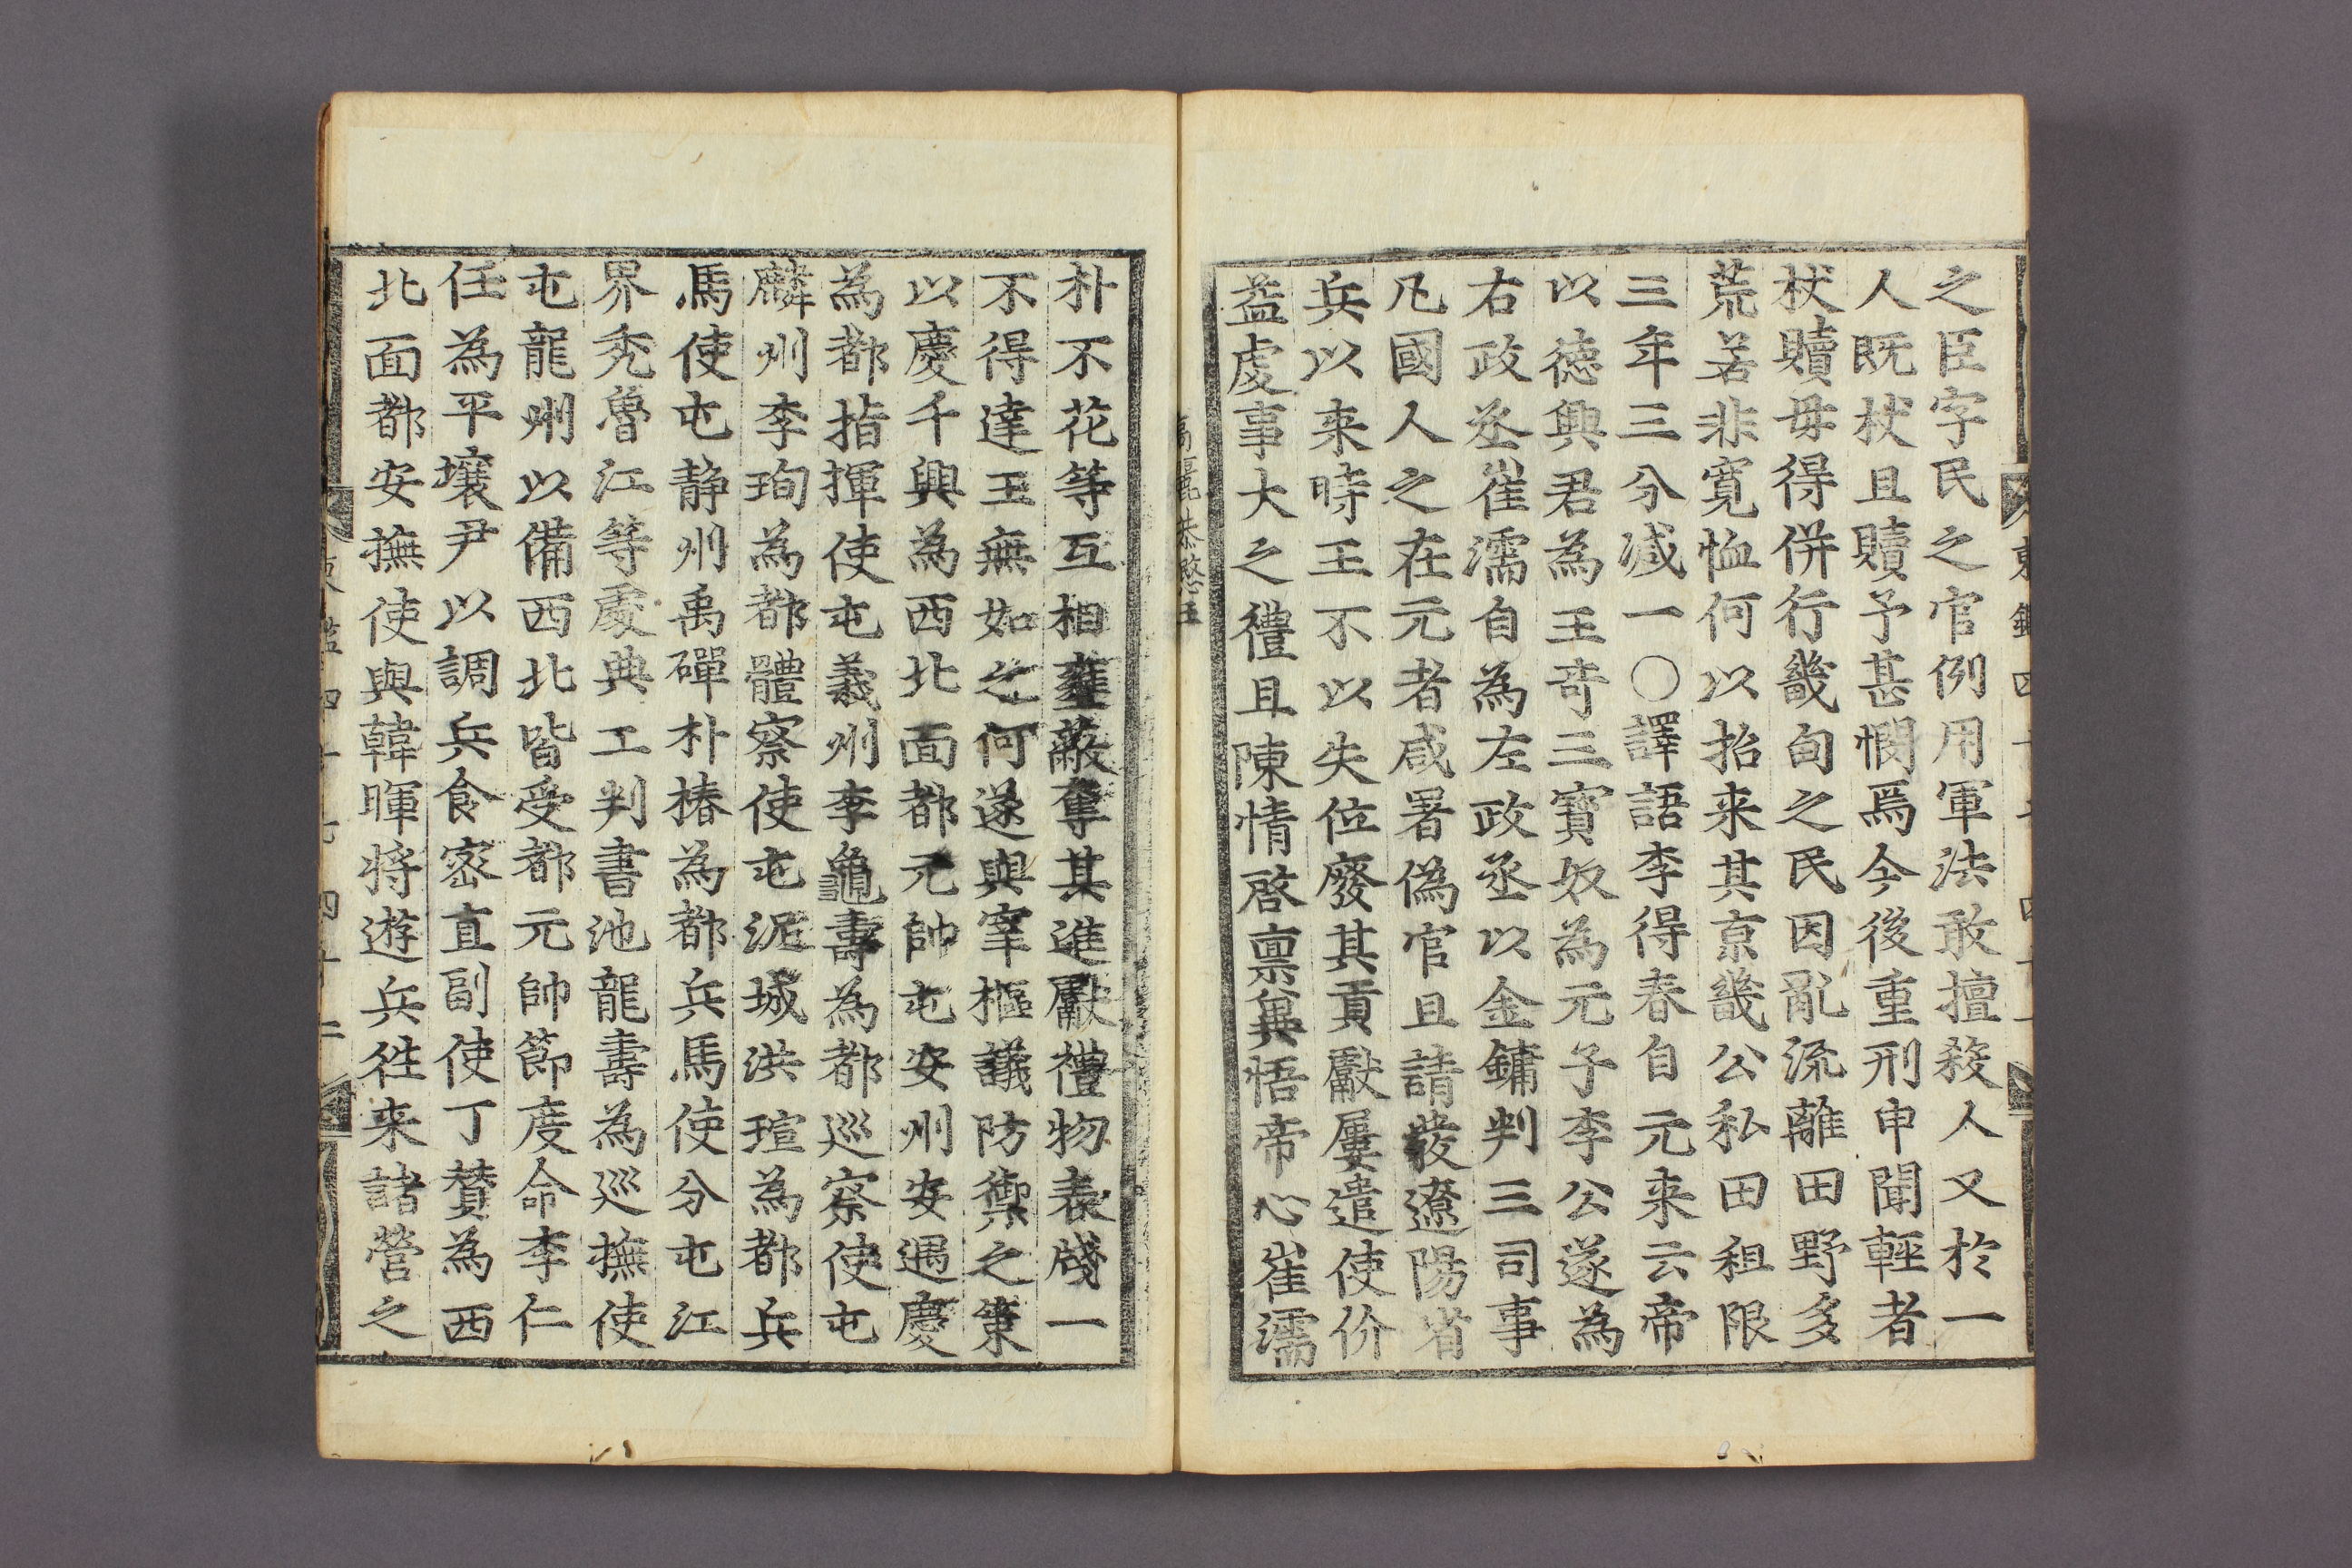 之臣字民之官例用軍法敢擅殺人又於一
人既杖且贖予甚憫焉今後重刑申聞輕者
杖贖毋得併行畿甸之民因亂流離田野多
荒若非寬恤何以招来其京畿公私田租限
三年三分减一〇譯語李得春自元来云帝
以德興君為王奇三寶奴為元子李公遂為
右政丞崔濡自為左政丞以金鏞判三司事
凡國人之在元者咸署偽官且請發遼陽省
兵以来時王不以失位廢其貢獻屢遣使价
益虔事大之禮且陳情啓禀兾悟帝心崔濡
高麗恭愍王
朴不花等互相壅蔽奪其進獻禮物表牋一
不得達王無如之何遂與宰樞議防禦之策
以慶千興為西北面都元帥屯安州安遇慶
為都指揮使屯義州李龜壽為都巡察使屯
麟州李珣為都體察使屯泥城洪瑄為都兵
馬使屯静州禹磾朴椿為都兵馬使分屯江
界秃魯江等處典工判書池龍壽為巡撫使
屯龍州以備西北皆受都元帥節度命李仁
任為平壤尹以調兵食密直副使丁贊為西
北面都安撫使與韓暉将遊兵徃来諸營之